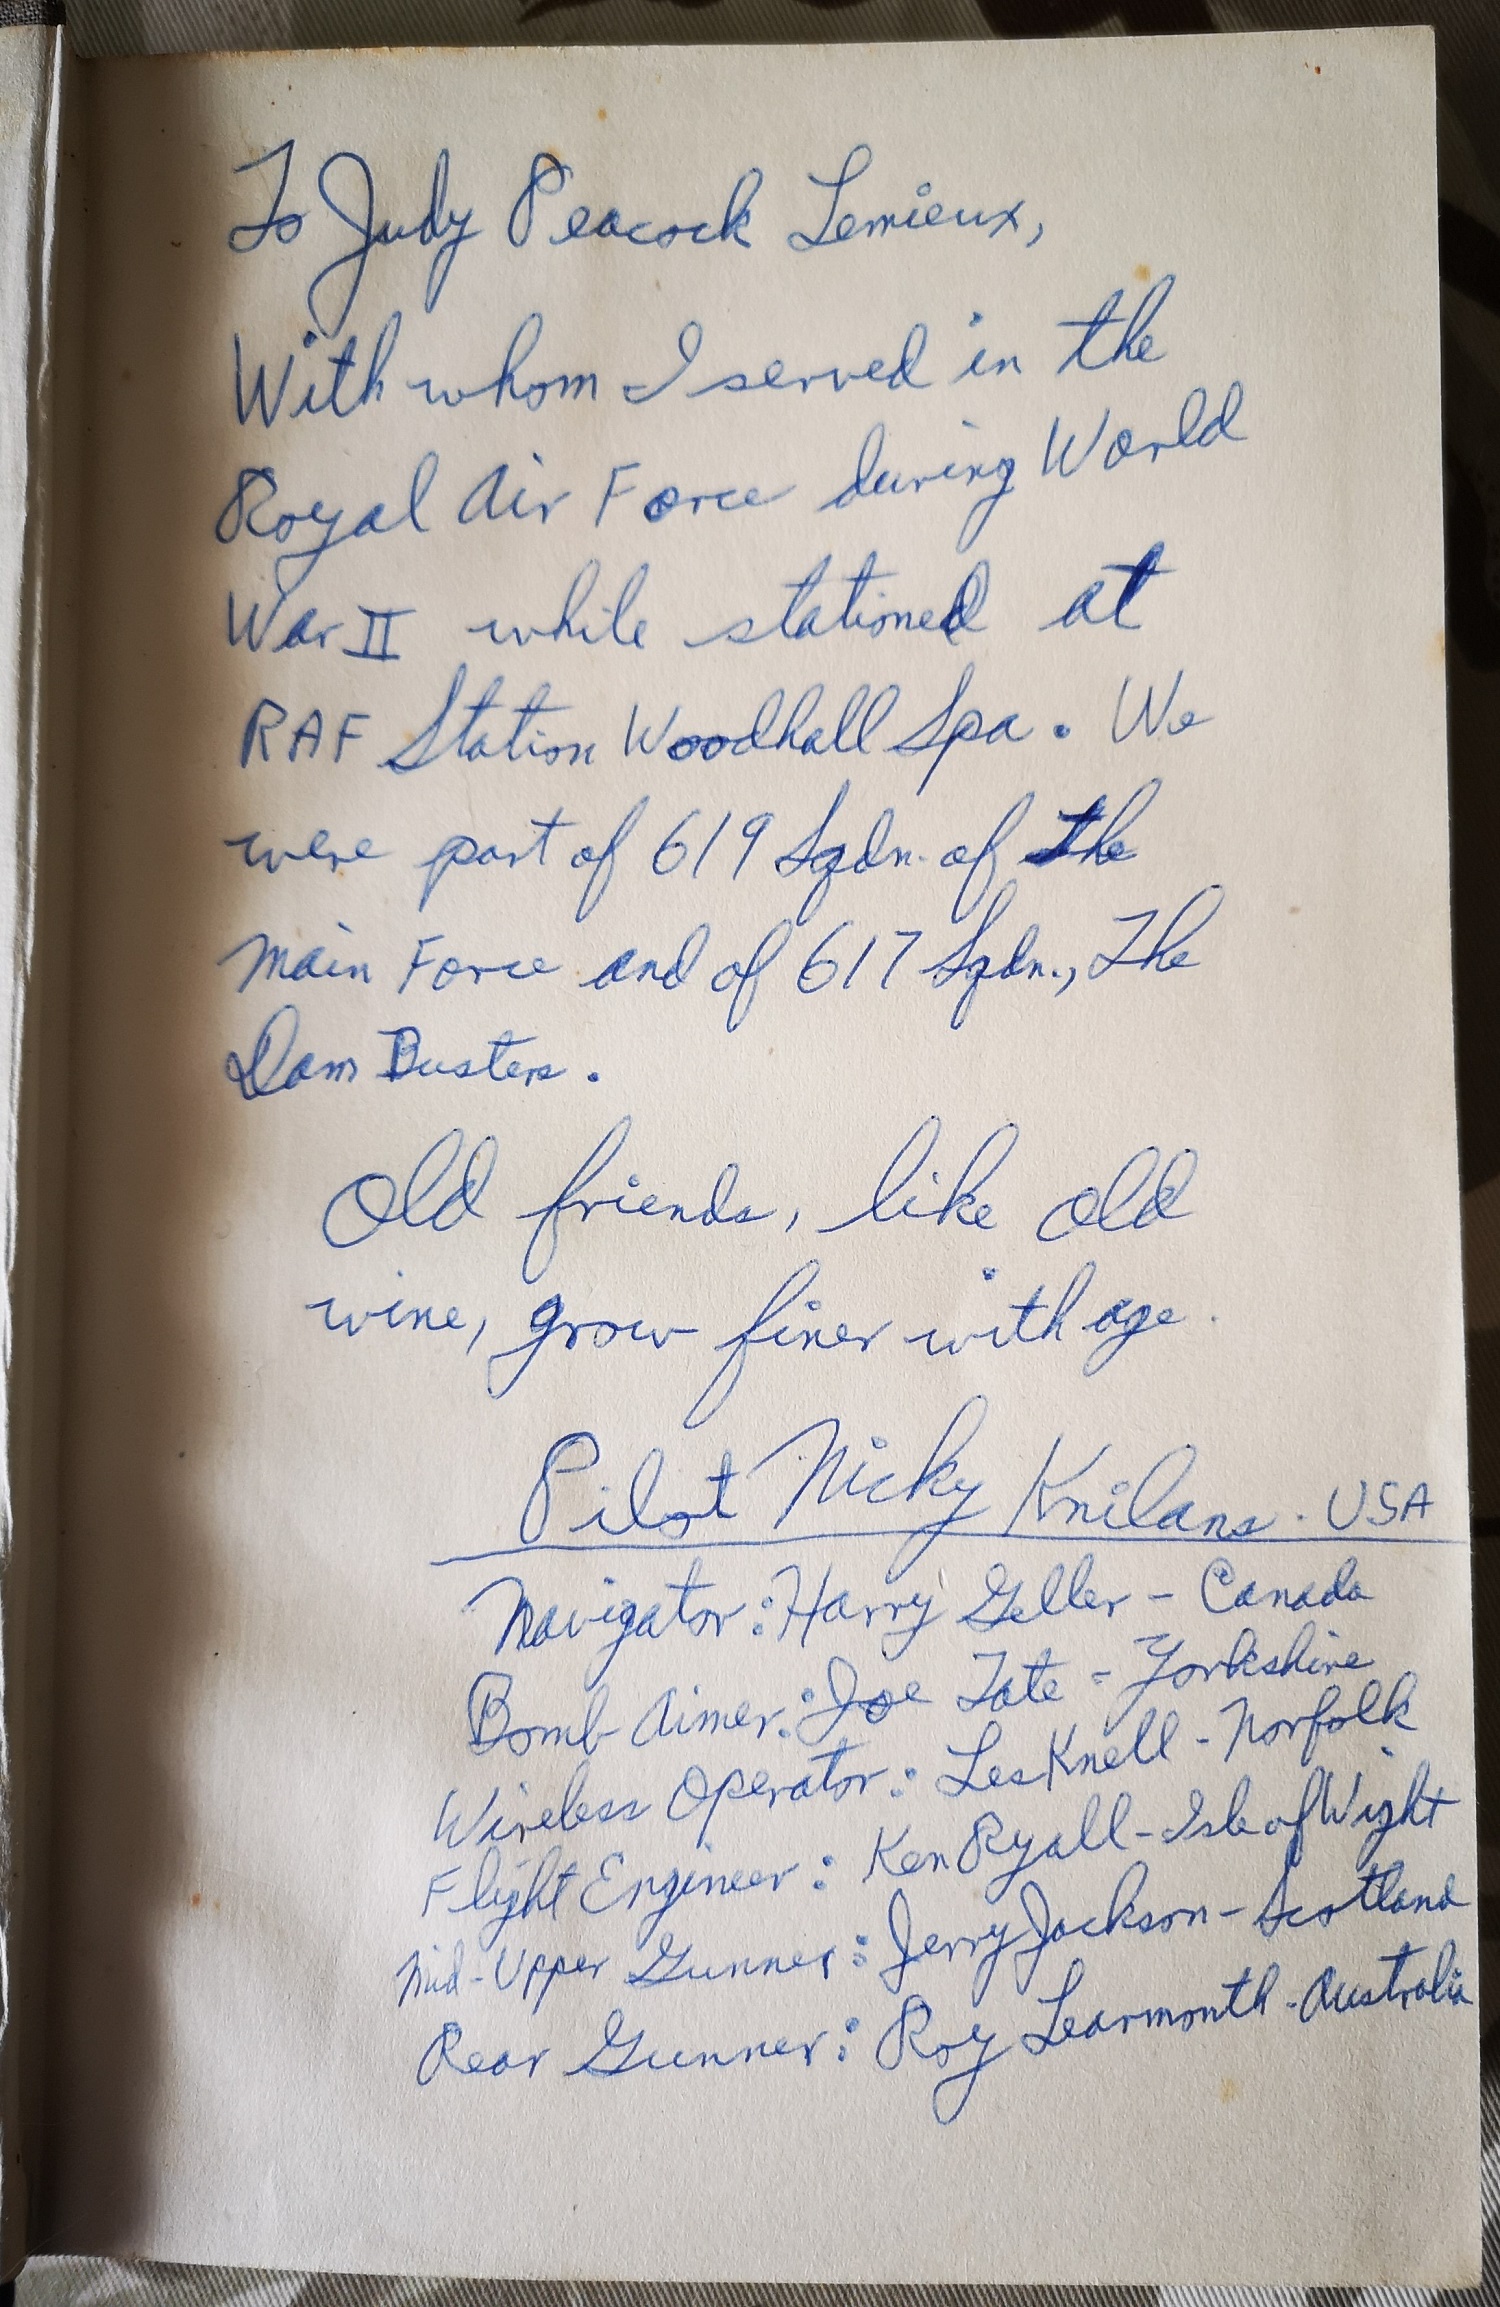 To Judy Peacock Lemieux,
With whom I served in the
Royal Air Force during World
War II while stationed at
RAF Station Woodhall Spa. We
were part of 619 Sqdn. of the
Main Force and of 617 Sqdn., The
Dam Busters.
Old friends, like old
wine, grow finer with age.
Pilot Nicky Knilans. USA
Navigator: Harry Geller - Canada
Bomb Aimer: Joe Tate - Yorkshire
Wireless Operator: Les Knell - Norfolk
Flight Engineer: Ken Ryall - Isle of Wight
Mid-Upper Gunner: Jerry Jackson - Scotland
Rear Gunner: Roy Learmonth - Australia